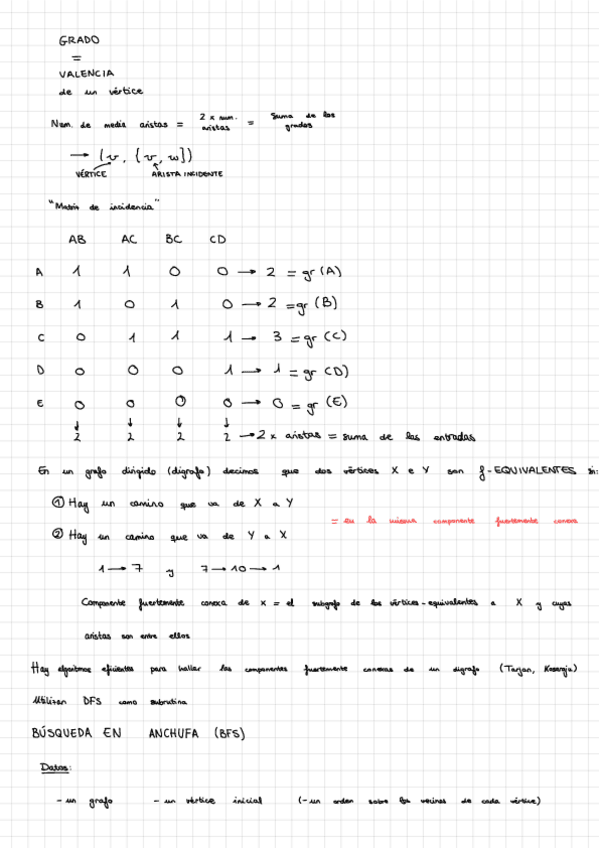 GRADO
=
VALENCIA
de un vértice
Num. de media aristas = 2 x num. aristas = Suma de los grados
→ (v, {v, w})
VÉRTICE ARISTA INCIDENTE
"Matriz de incidencia"
AB AC BC CD
A 1 1 0 0 → 2 = gr (A)
B 1 0 1 0 → 2 = gr (B)
C 0 1 1 1 → 3 = gr (C)
D 0 0 0 1 → 1 = gr (D)
E 0 0 0 0 → 0 = gr (E)
↓ ↓ ↓ ↓
2 2 2 2 → 2 x aristas = suma de las entradas
En un grafo dirigido (digrafo) decimos que dos vértices X e Y son f-EQUIVALENTES si:
① Hay un camino que va de X a Y
= en la misma componente fuertemente conexa
② Hay un camino que va de Y a X
1 → 7 y 7 → 10 → 1
Componente fuertemente conexa de x = el subgrafo de los vértices-equivalentes a X y cuyas
aristas son entre ellos
Hay algoritmos eficientes para hallar las componentes fuertemente conexas de un digrafo (Tarjan, Kosaraju)
Utilizan DFS como subrutina
BÚSQUEDA EN ANCHUFA (BFS)
Datos:
- un grafo - un vértice inicial (- un orden sobre los vecinos de cada vértice)